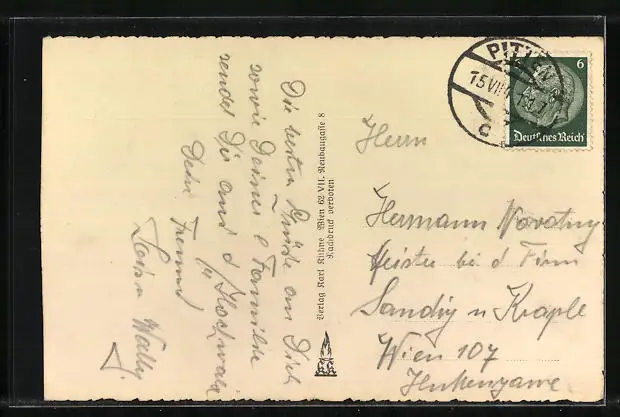 Die besten Grüße an Dich
sowie Deine l. Familie
sendet Dir aus d
Dein
Freund
Verlag Karl Kühne Wien 62 VII. Neubaugasse 8
Nachdruck verboten
PITTEN
15 VII
C
6
Deutsches Reich
Herrn
Hermann Novotny
Meister bei d Firm
Sandig u Kraple
Wien 107